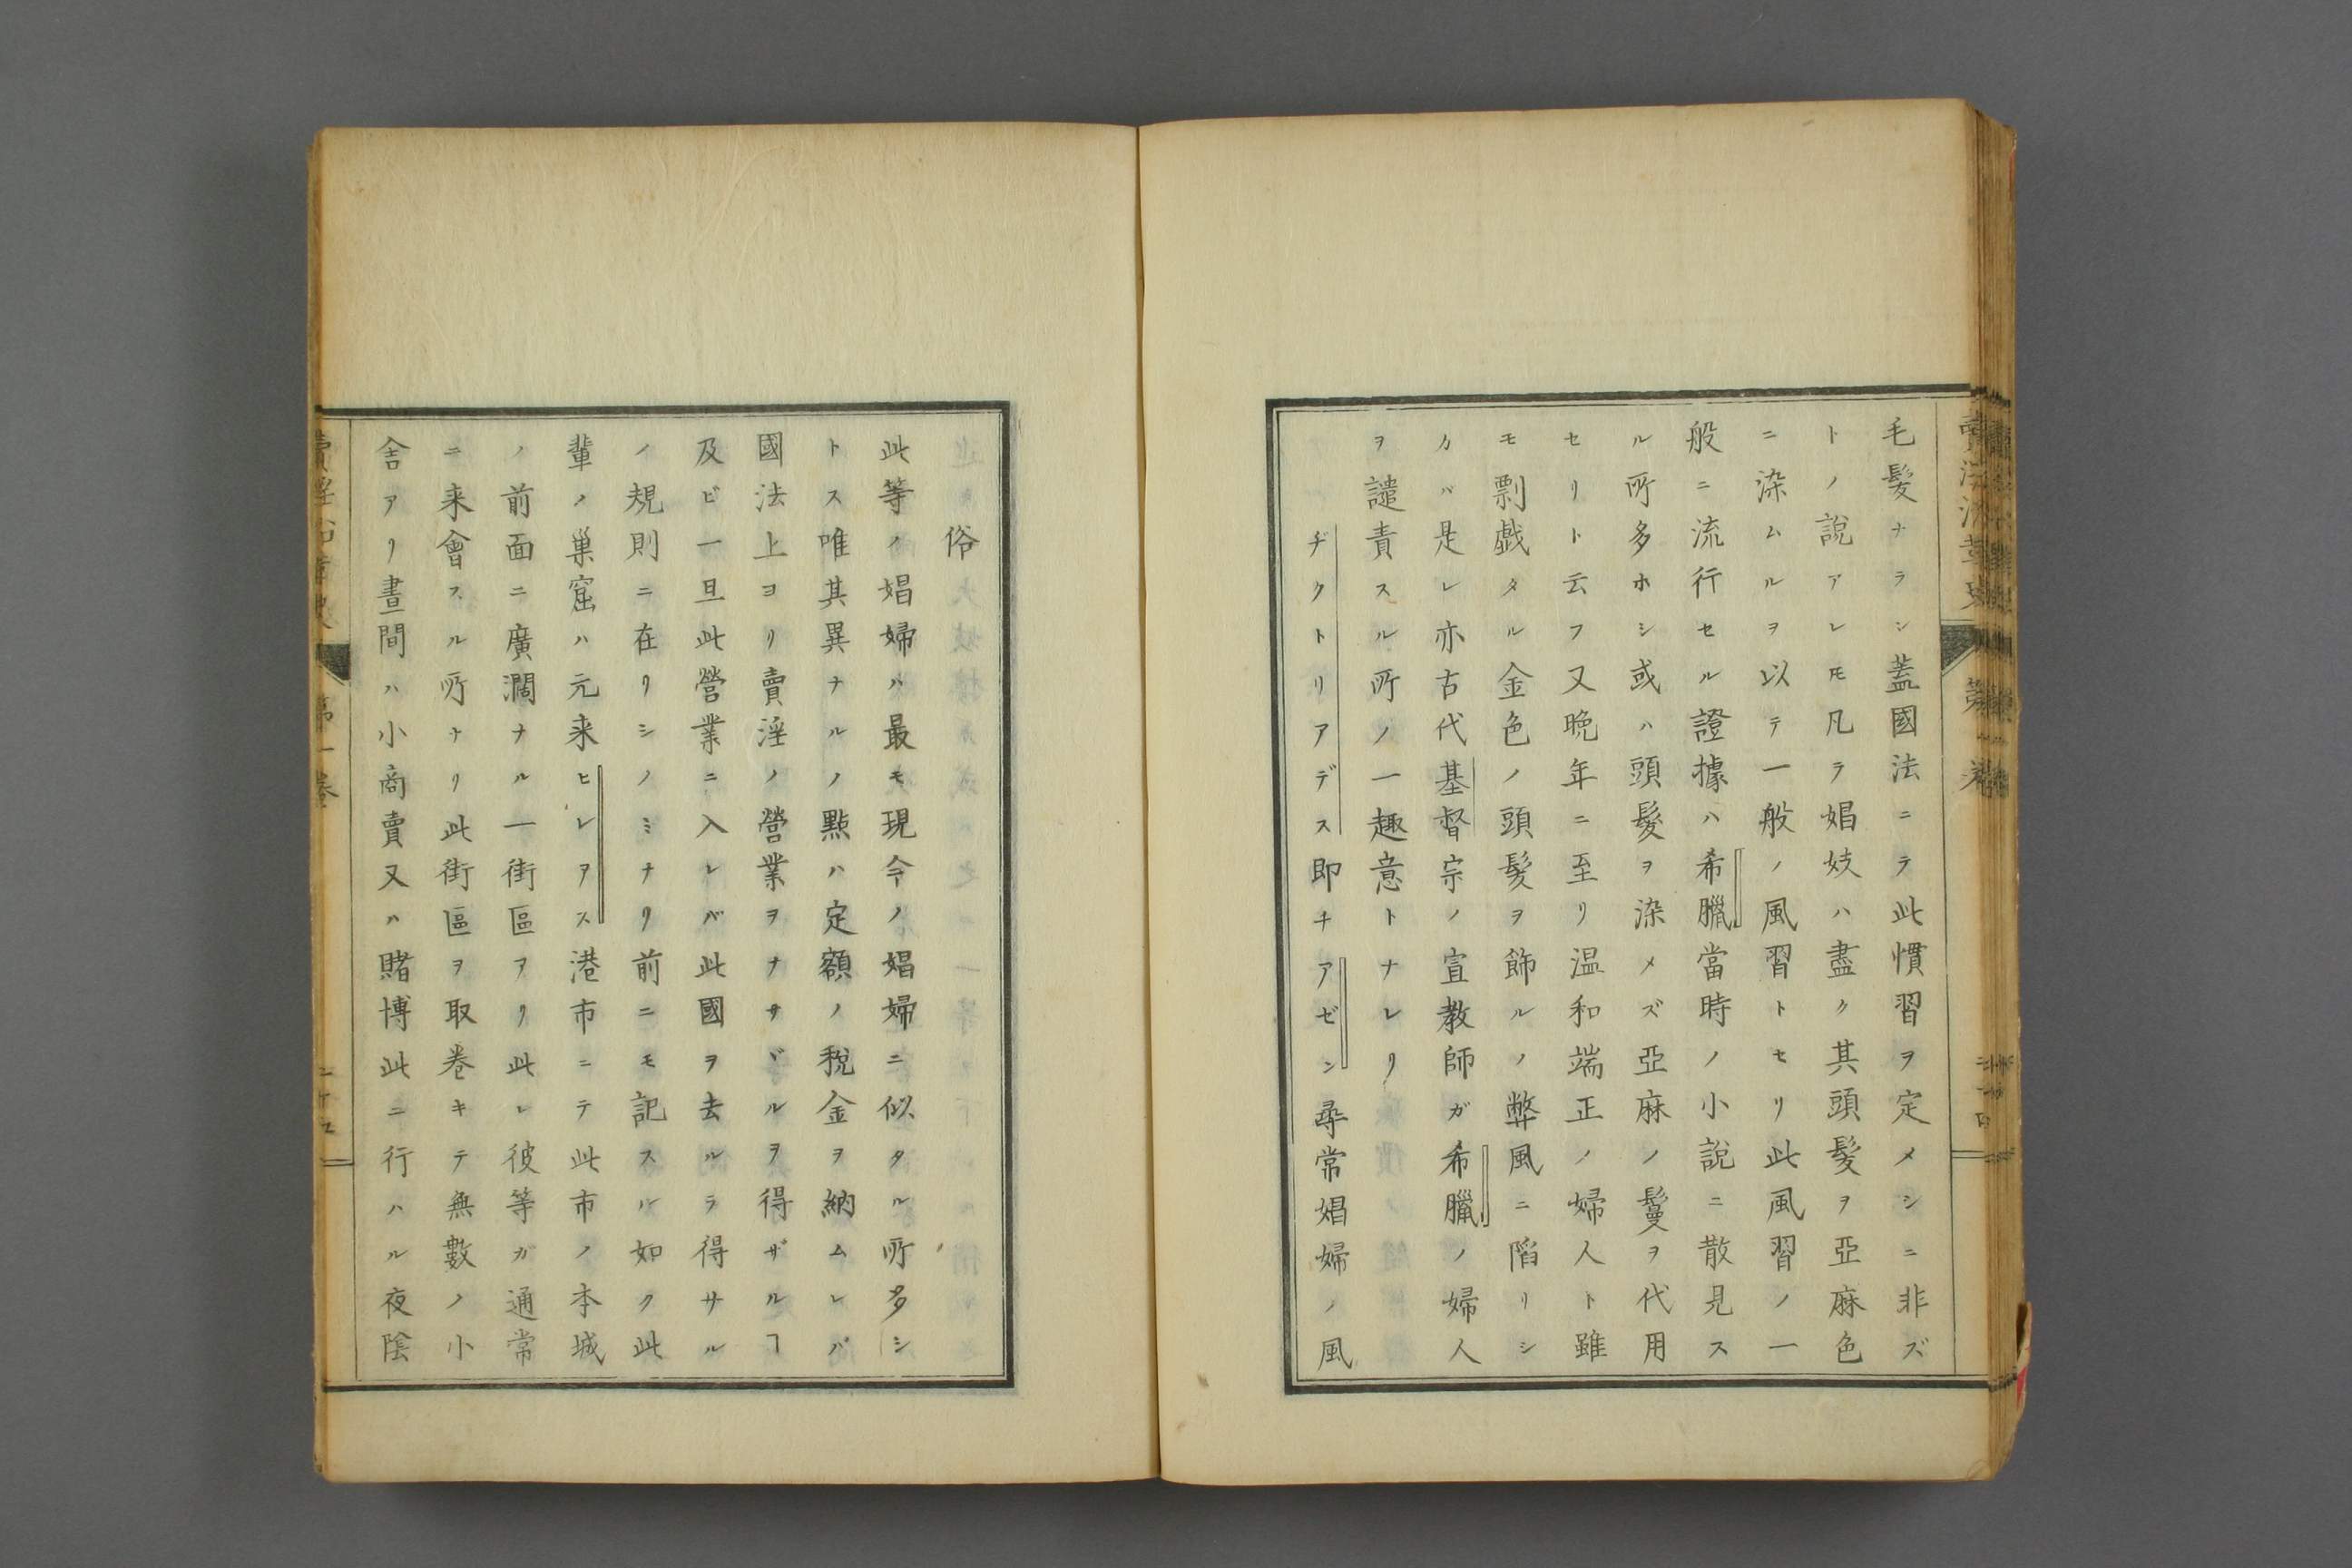 毛髪ナラン蓋國法ニテ此慣習ヲ定メシニ非ズ
トノ説アレモ凡ラ娼妓ハ盡ク其頭髪ヲ亞麻色
ニ染ムルヲ以テ一般ノ風習トセリ此風習ノ一
般ニ流行セル證據ハ希臘當時ノ小説ニ散見ス
ル所多ホシ或ハ頭髮ヲ染メズ亞麻ノ鬘ヲ代用
セリト云フ又晩年ニ至リ温和端正ノ婦人ト雖
モ剽戯タル金色ノ頭髮ヲ飾ルノ弊風ニ陷リシ
カバ是レ亦古代基督宗ノ宣教師ガ希臘ノ婦人
ヲ譴責スル所ノ一趣意トナレリ
ヂクトリアデス即チアゼン尋常娼婦ノ風
俗
此等ノ娼婦ハ最モ現今ノ娼婦ニ似タル所多シ
トス唯其異ナルノ點ハ定額ノ税金ヲ納ムレバ
國法上ヨリ賣淫ノ營業ヲナサヾルヲ得ザルヿ
及ビ一旦此營業ニ入レバ此國ヲ去ルラ得サル
ノ規則ニ在リシノミナリ前ニモ記スル如ク此
輩ノ巣窟ハ元来ヒレアス港市ニテ此市ノ本城
ノ前面ニ廣濶ナル一街區アリ此レ彼等ガ通常
ニ来會スル所ナリ此街區ヲ取巻キテ無數ノ小
舎アリ晝間ハ小商賣又ハ賭博此ニ行ハル夜陰
第一巻